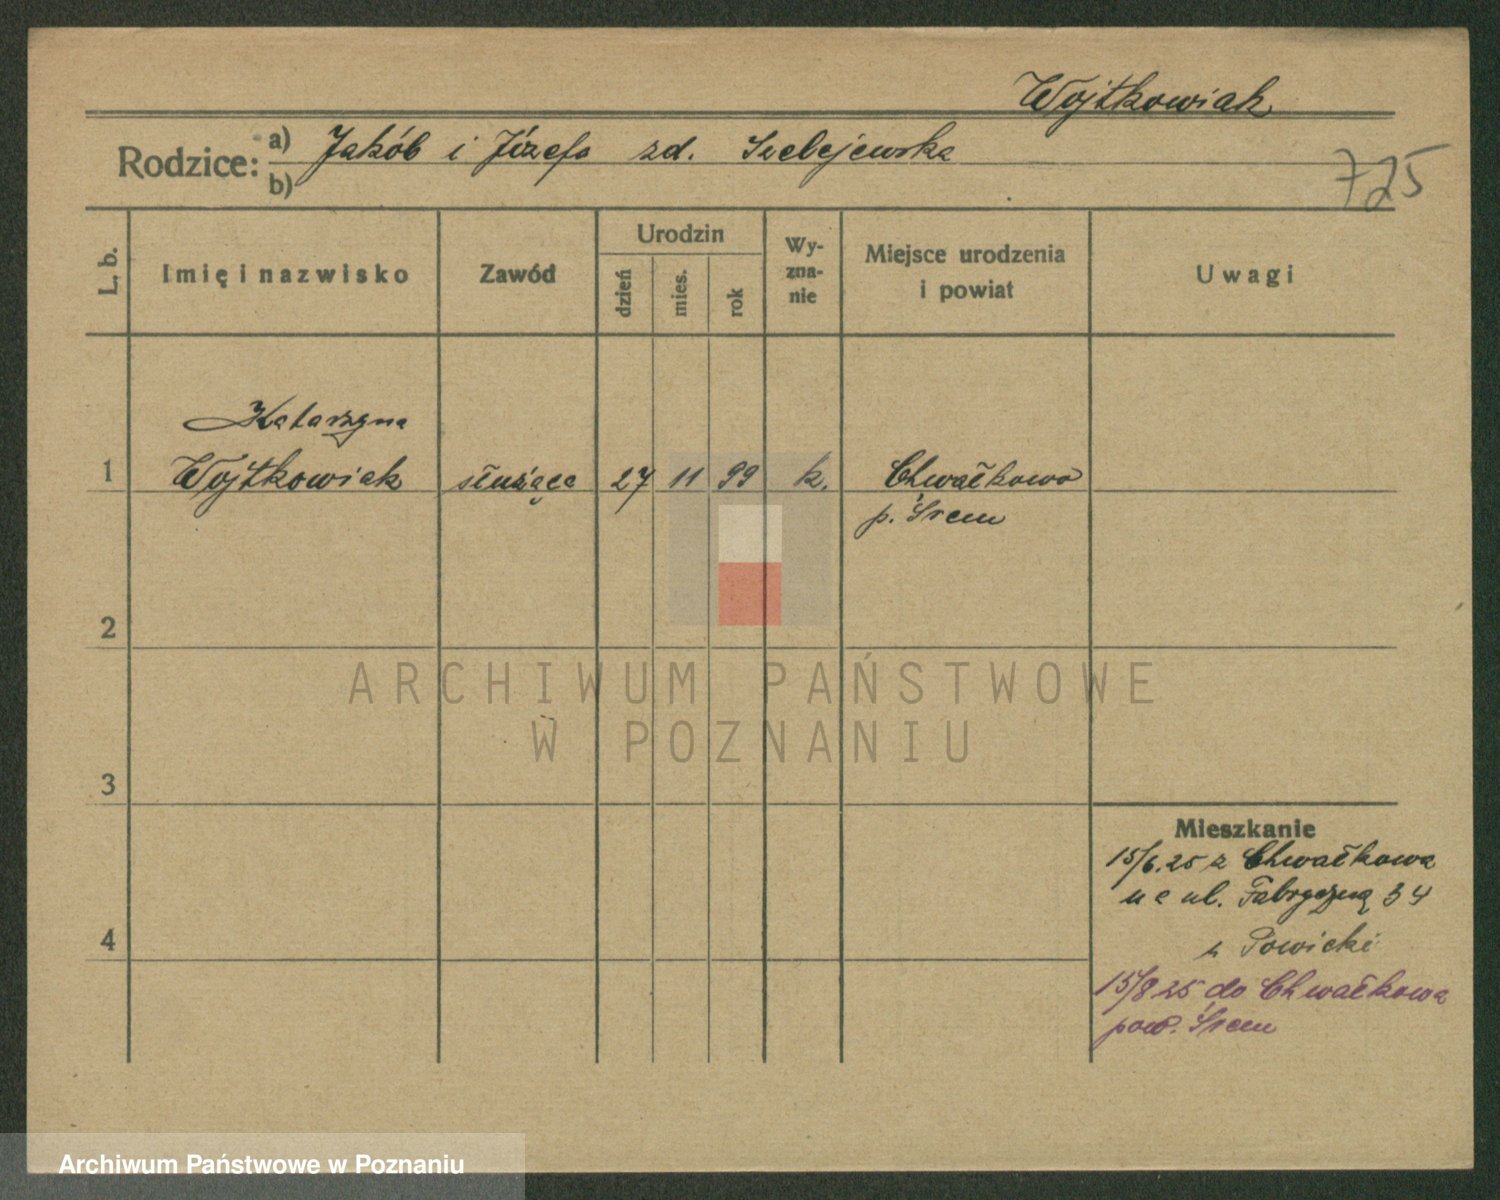 Wojtkowiak
Rodzice: a) Jakób i Józefa zd. Szelejewska
b)
725
L. b.
Imię i nazwisko
Zawód
Urodzin
dzień
mies.
rok
Wy-
zna-
nie
Miejsce urodzenia
i powiat
Uwagi
Katarzyna
1 Wojtkowiak służąca 27 11 99 k. Chwałkowo
p. Śrem
2
ARCHIWUM PAŃSTWOWE
W POZNANIU
3
Mieszkanie
15/6.25 z Chwałkowa
na ul. Fabryczną 34
4
15/8 25 do Chwałkowa
pow. Śrem
Archiwum Państwowe w Poznaniu